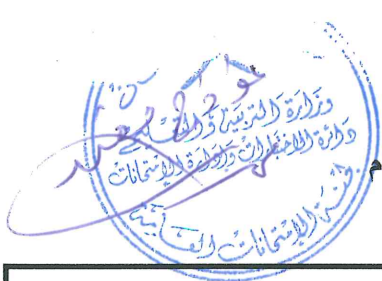 وزارة التربية والتعليم
دائرة الاختبارات وإدارة الامتحانات
لجنة الامتحانات العامة
م